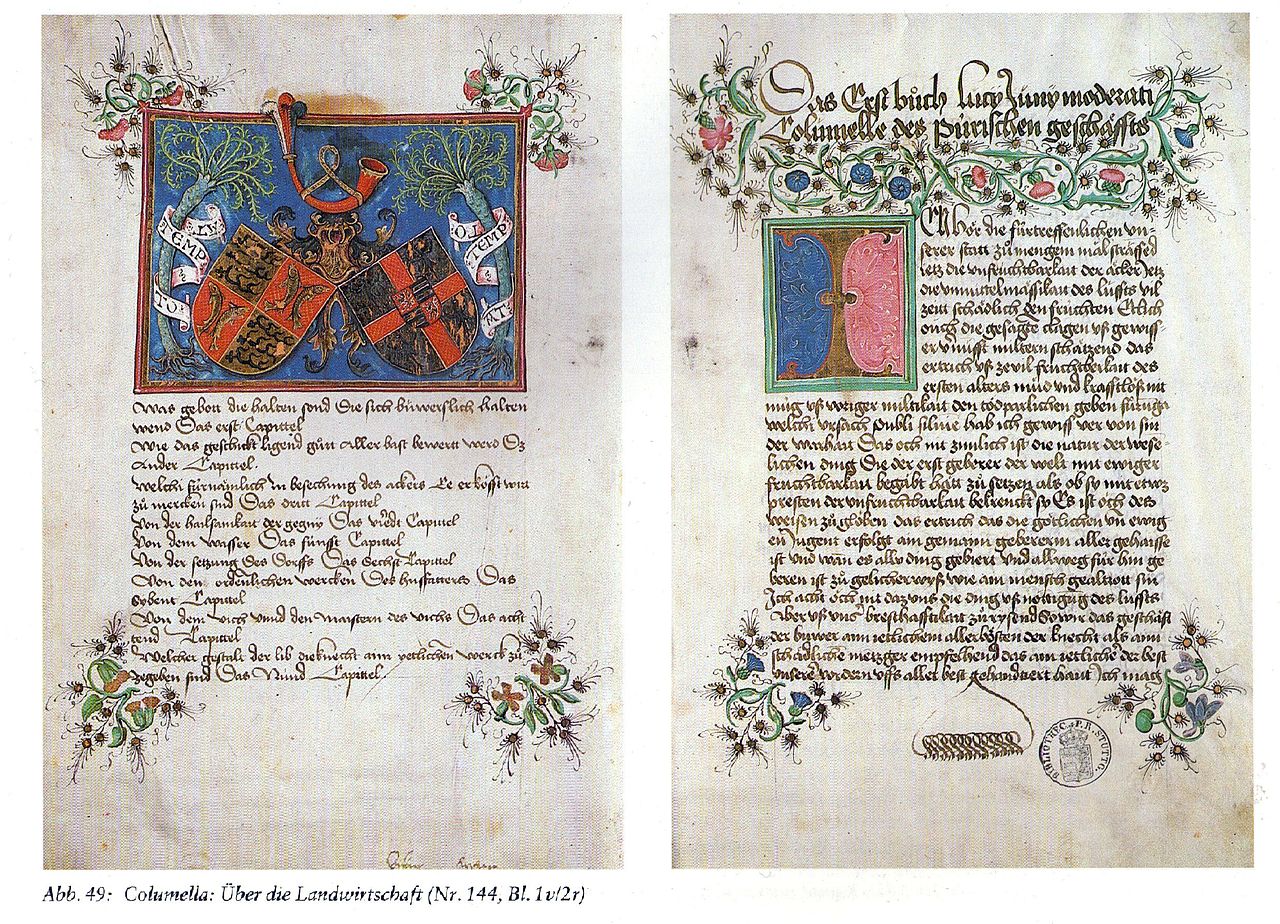 ATTEMPTO
ATTEMPTO
Was gebott die halten sond Die sich büwerslich halten
wend Das erst Capittel
Wie das geschickt ligend gůtt Aller bast bewert werd Dz
Ander Capittel.
Welchi fürnämlich In besechung des ackers Ee er köfft wirt
zů mercken sind Das dritt Capittel
Von der hailsamkait der gegny Das vierdt Capittel
Von dem wasser Das fünfft Capittel
Von der setzung des Dorffs Das Sechst Capittel
Von den ordenlichen wercken Des husfatters Das
Sybent Capittel
Von dem vich vnnd den maistern des vichs Das acht
tend Capittel
Welcher gestalt der lib der knecht ann yetlichen werck zů
gegeben sind Das Nünd Capittel.
Das Erst bůch lucy Juny moderati
Columelle des pürischen geschäffts
Ich hör die fürtreffenlichen vn-
serer statt zů mengem mal sträffed
Jetz die vnfruchtbarkait der äcker Jetz
die vnmittelmässikait des luffts vil
zeitt schädlich den früchten Ettlich
ouch die gesagte clagen vß gewiss-
er vrnufft miltern schätzend das
ertrich vß ze vil fruchtbarkait des
ersten alters müd vnd krafftloß mit
nüg vß voriger miltikait den tödparlichen geben fürung
welchi vrsach publi siluine hab ich gewiss ver von sin
der warhait Das och nit zimlich ist die natur der wese-
lichen ding Die der erst geberer der welt mit ewiger
fruchtbarkait begabt hatt zů setzen als ob sy mit etwz
presten der vnfruchtbarkait bekrenckt sy Es ist och des
weisen zů globen das ertrich das die götlichen vn ewig
en Jugent erfolgt ain gemain gebererin aller gehaisse
ist vnd wan es alliu ding gebiert vnd allweg für hin ge
beren ist zů gelicher wyß wie ain mensch gealttott sin
Ich acht och nit daz vns die ding vß nöttigung des luffts
Aber vß vnser bresthafftikait zů rysend So wir das geschäft
der buwer ainn ietlichem aller bösten der knecht als ainn
schädliche metzger empfelhend das ain ietlicher der best
vnsere vordern vffs aller best gehandtiert haut Ich mag
BIBLIOTHEC. P. R. STUTTG.
Abb. 49: Columella: Über die Landwirtschaft (Nr. 144, Bl. 1v/2r)